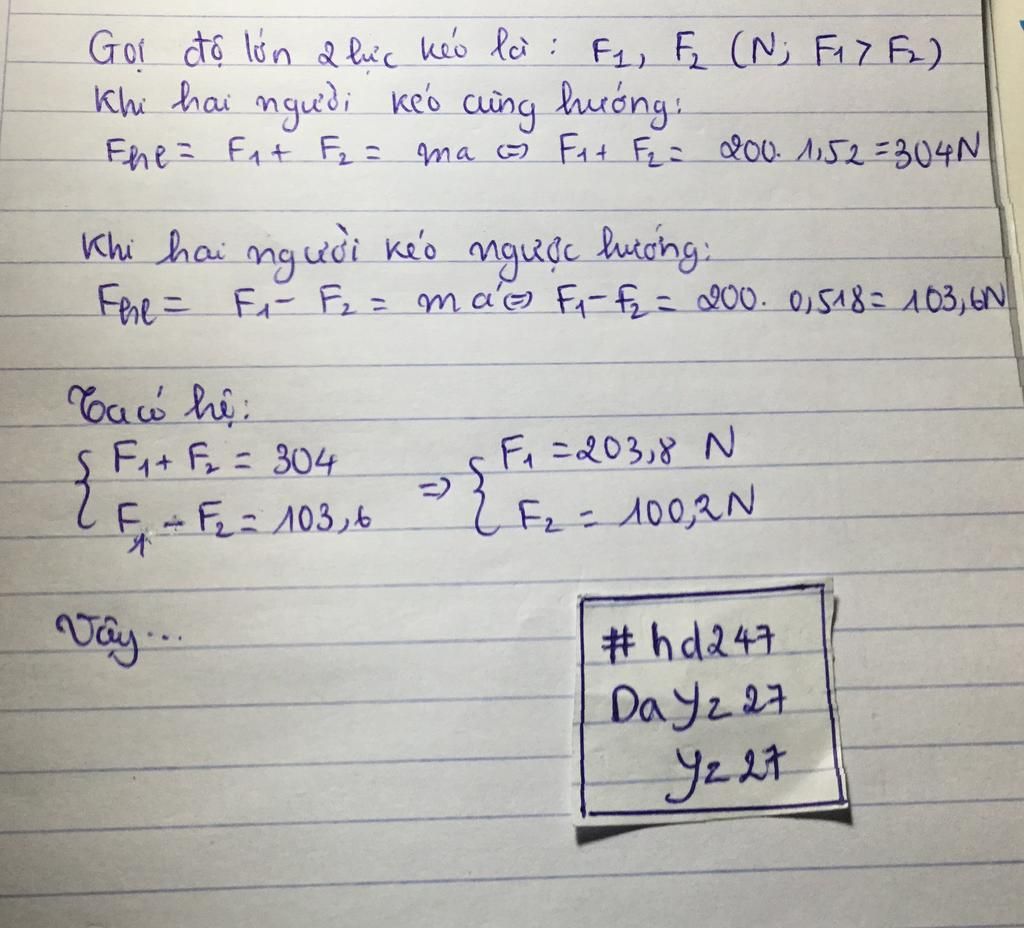 Gọi độ lớn 2 lực kéo là : F1, F2 (N; F1 > F2)
Khi hai người kéo cùng hướng:
Fhl = F1 + F2 = ma <=> F1 + F2 = 200. 1,52 = 304N
Khi hai người kéo ngược hướng:
Fhl = F1 - F2 = ma' <=> F1 - F2 = 200. 0,518 = 103,6N
Ta có hệ:
{ F1 + F2 = 304 => { F1 = 203,8 N
F1 - F2 = 103,6 F2 = 100,2N
Vậy...
#hd247
Dayz27
yz27